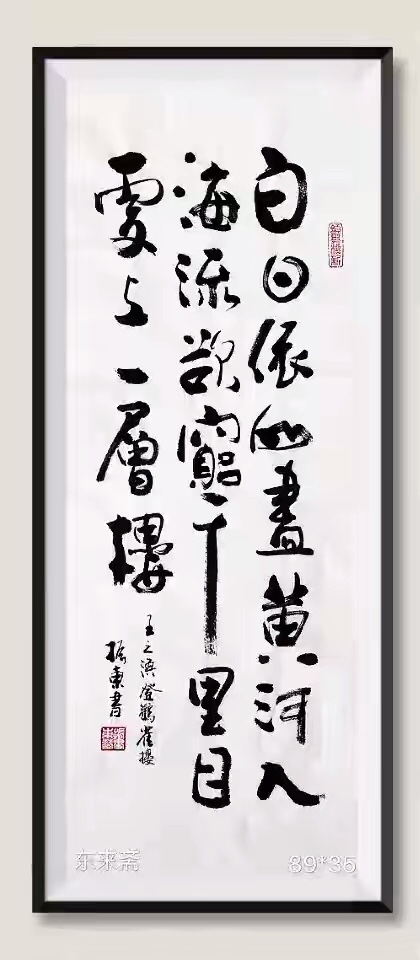 白日依山盡黄河入
海流欲窮千里目
更上一層樓
王之涣登鸛雀樓
振東書
东来斋
89*35